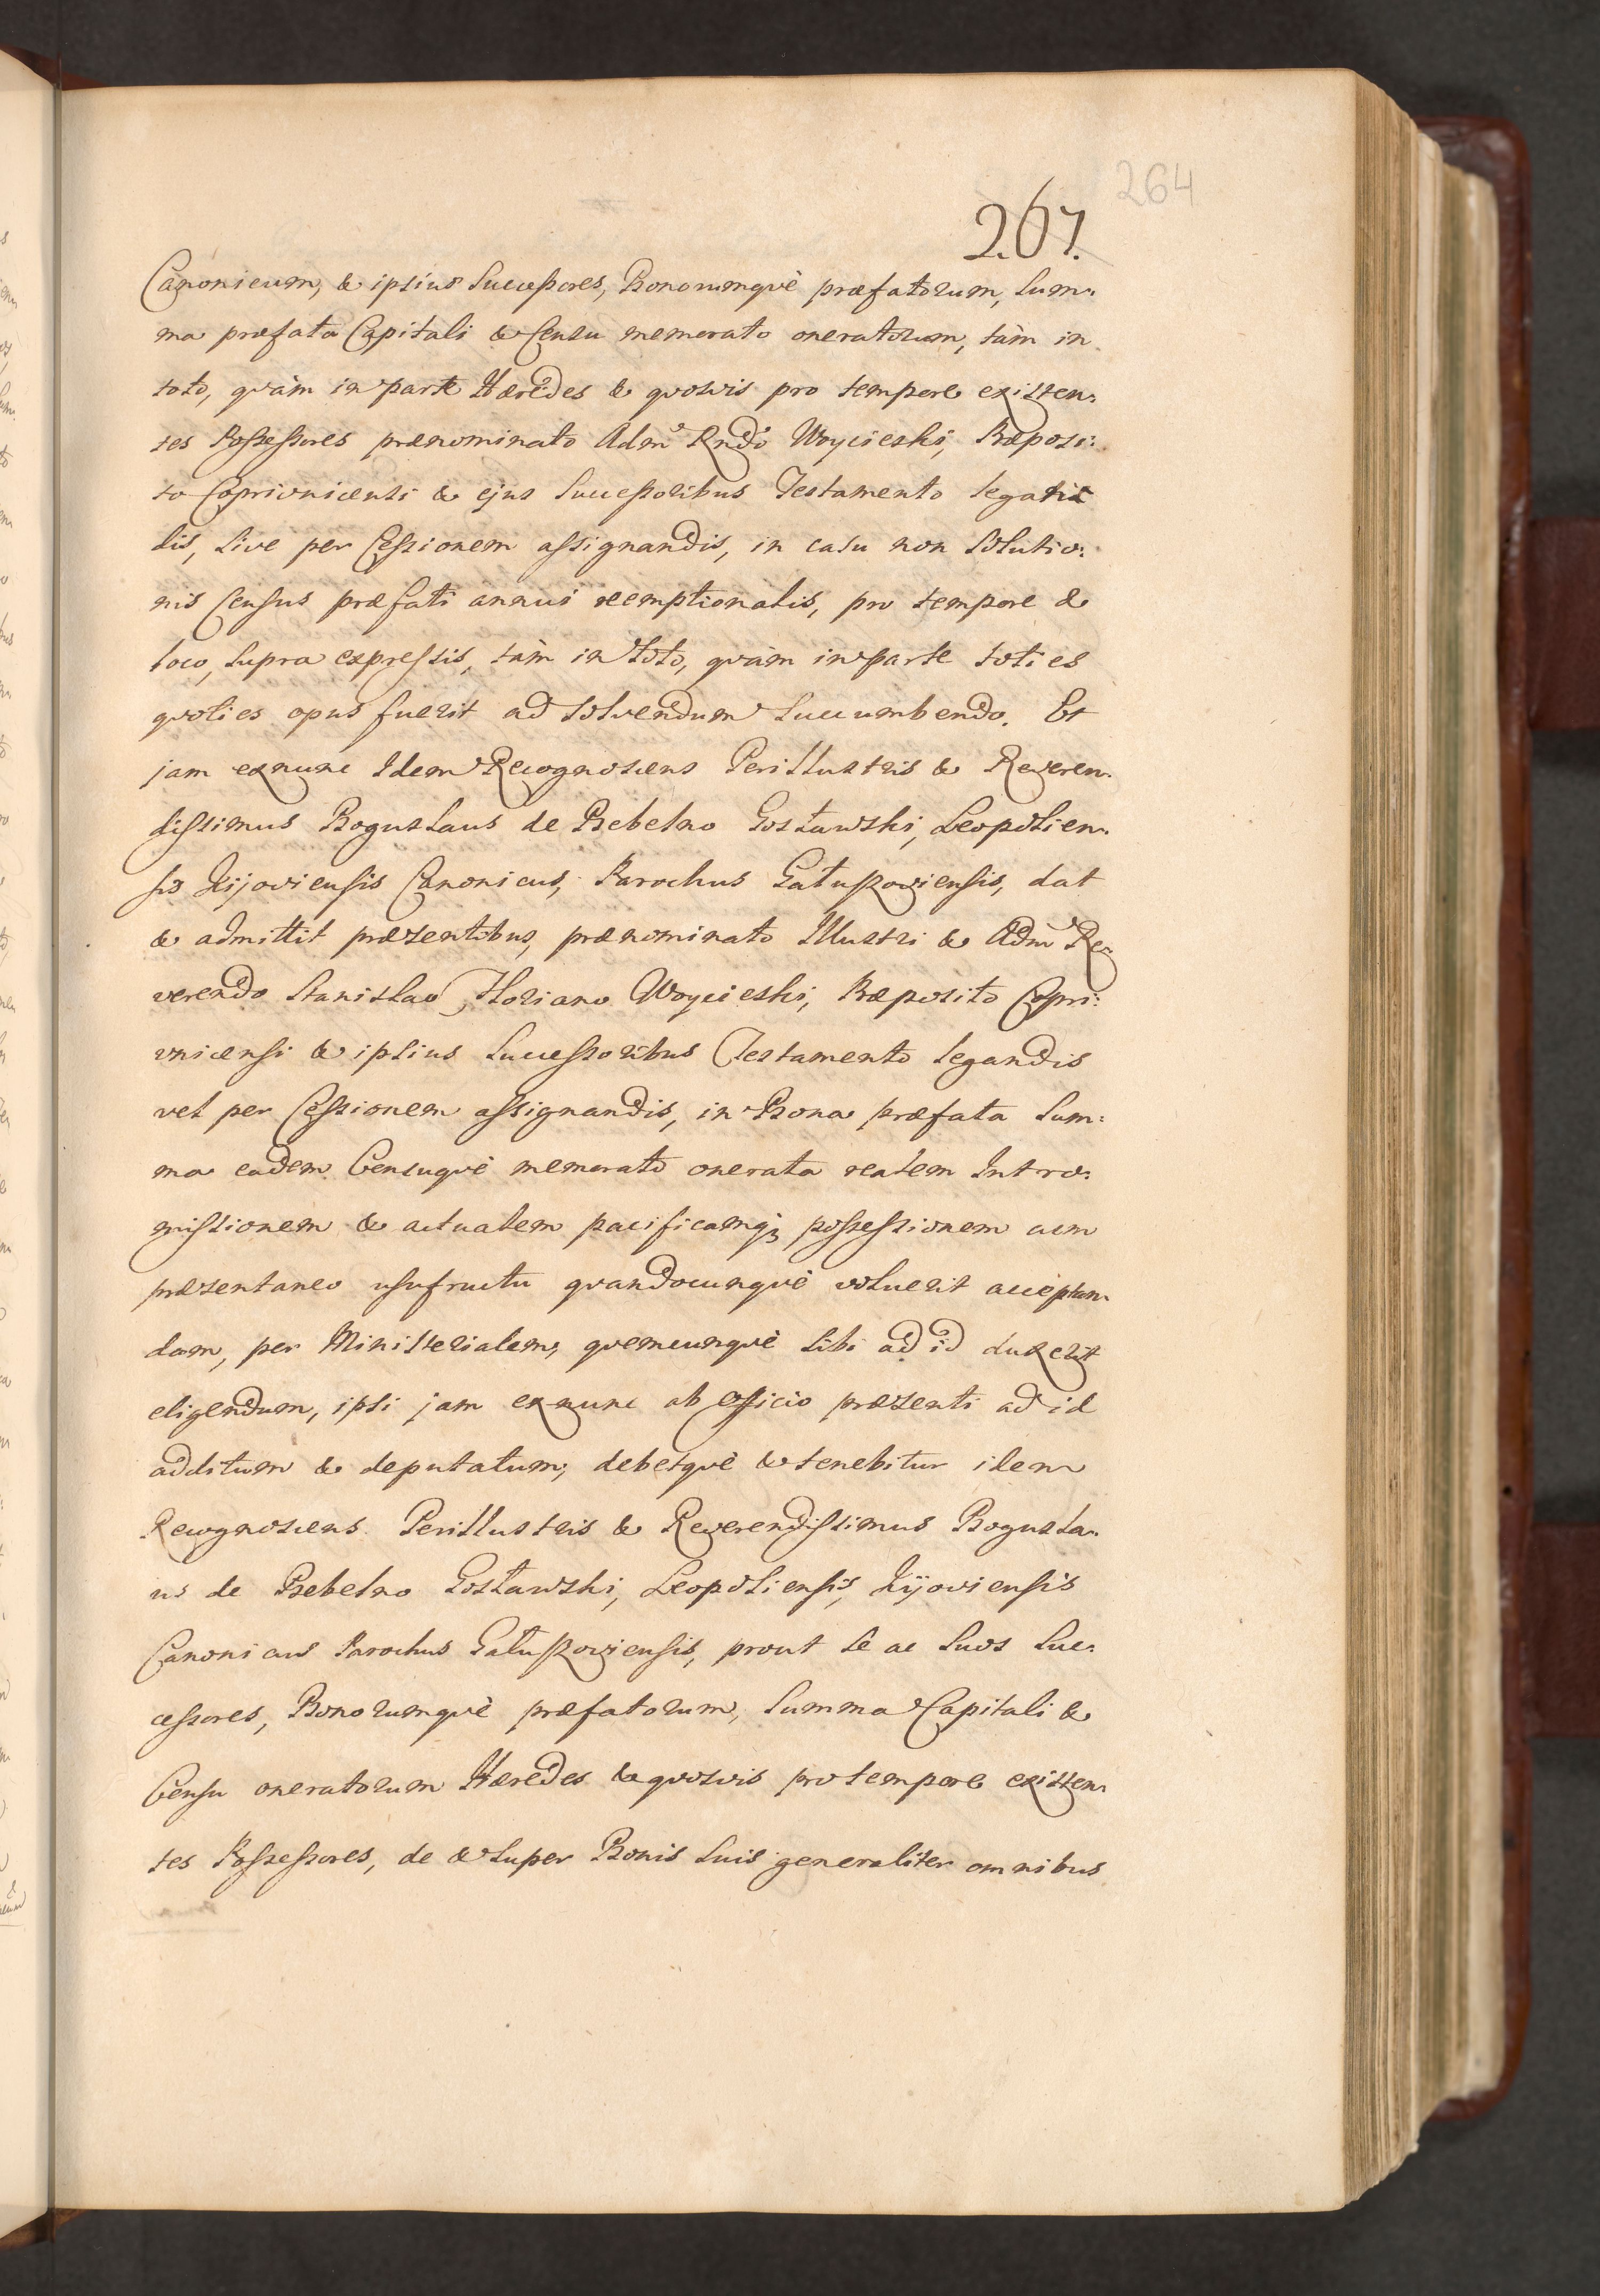 264
267.
Canonicum, & ipsius Successores, Bonorumqvè præfatorum, Sum:
ma præfata Capitali & Censu memorato oneratorum, tàm in
toto, qvàm in parte Hæredes & qvosvis pro tempore existen:
tes Possessores prænominato Adm Rndo Woycieski, Præposi:
to Coprivnicensi & ejus Successoribus Testamento legan
dis, Sive per Cessionem assignandis, in casu non Solutio:
nis Census præfati annui reemptionalis, pro tempore &
loco, Supra expressis, tàm in toto, qvàm in parte toties
qvoties opus fuerit ad Solvendum Succumbendo. Et
jam exnunc Idem Recognoscens Perillustris & Reveren:
dissimus Boguslaus de Bebelno Gosławski, Leopolien:
sis Kijoviensis Canonicus, Parochus Gałuszoviensis, dat
& admittit præsentibus, prænominato Illustri & Adm Re:
verendo Stanislao Floriano Woycieski, Præposito Copri:
vnicensi & ipsius Successoribus Testamento legandis
vel per Cessionem assignandis, in Bona præfata Sum:
ma eadem Censuqvè memorato onerata realem Intro:
missionem & actualem pacificamq; possessionem cum
præsentaneo usufructu qvandocunqvè voluerit acceptan:
dam, per Ministerialem, qvemcunqvè Sibi ad id duxerit
eligendum, ipsi jam exnunc ab officio præsenti ad id
additum & deputatum; debetqvè & tenebitur idem
Recognoscens Perillustris & Reverendissimus Bogusla:
us de Bebelno Gosławski, Leopoliensis, Kijoviensis
Canonicus Parochus Gałuszoviensis, prout Se ac Suos Suc:
cessores, Bonorumqvè præfatorum, Summa Capitali &
Censu oneratorum Hæredes & qvosvis pro tempore existen:
tes Possessores, de & Super Bonis Suis generaliter omnibus